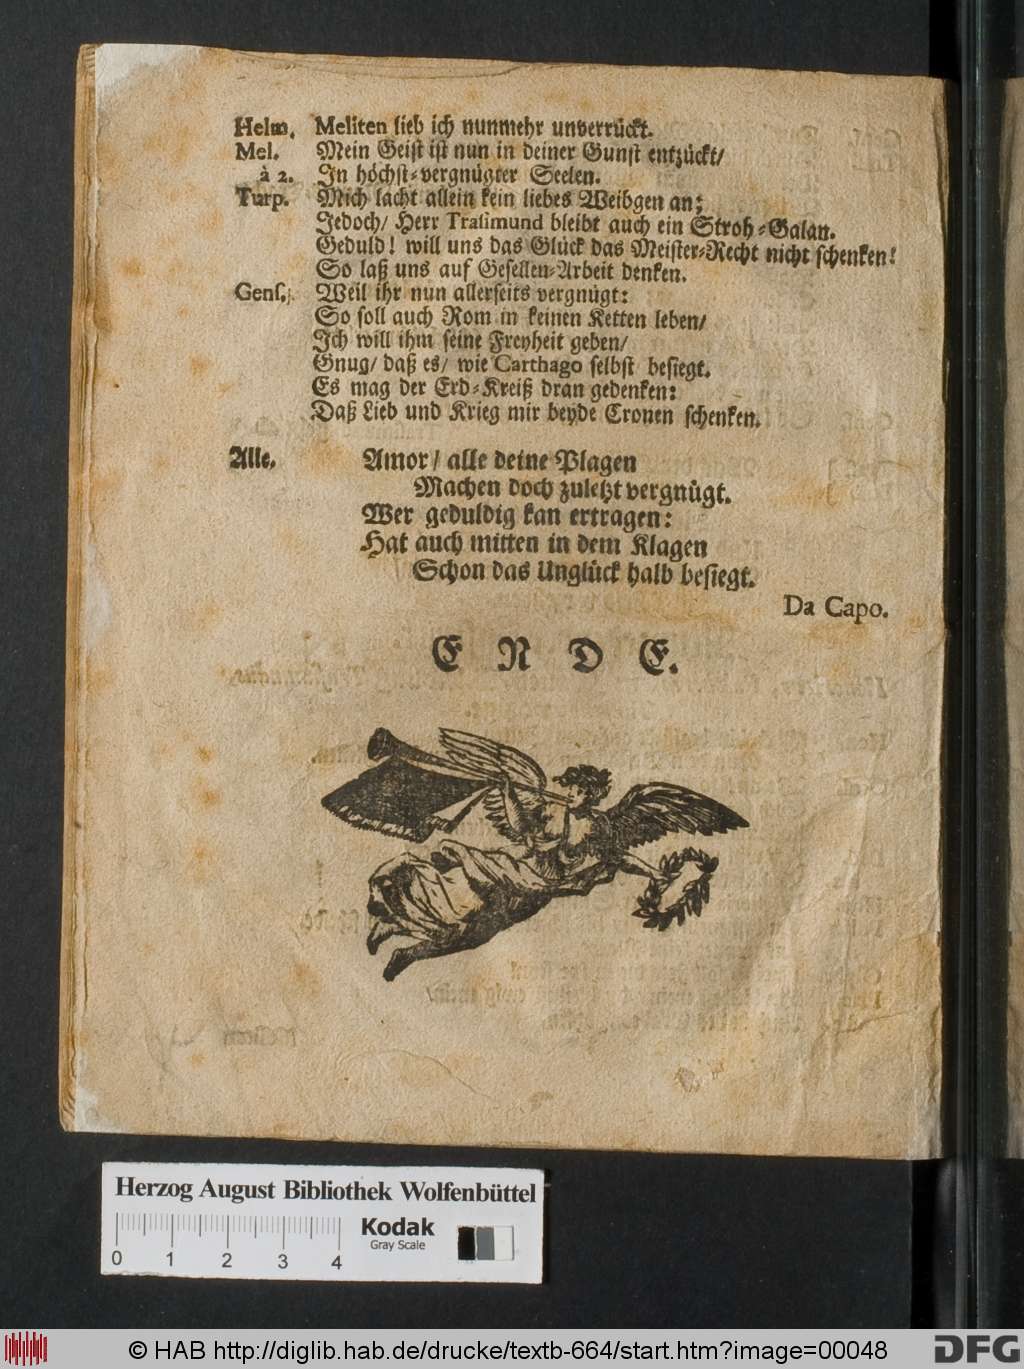 Helm. Meliten lieb ich nunmehr unverrückt.
Mel. Mein Geist ist nun in deiner Gunst entzückt/
à 2. In höchst-vergnügter Seelen.
Turp. Mich lacht allein kein liebes Weibgen an;
Jedoch/ Herr Trasimund bleibt auch ein Stroh-Galan.
Geduld! will uns das Glück das Meister-Recht nicht schenken!
So laß uns auf Gesellen-Arbeit denken.
Gens. Weil ihr nun allerseits vergnügt:
So soll auch Rom in keinen Ketten leben/
Ich will ihm seine Freyheit geben/
Gnug/ daß es/ wie Carthago selbst besiegt.
Es mag der Erd-Kreiß dran gedenken:
Daß Lieb und Krieg mir beyde Cronen schenken.
Alle. Amor/ alle deine Plagen
Machen doch zuletzt vergnügt.
Wer geduldig kan ertragen:
Hat auch mitten in dem Klagen
Schon das Unglück halb besiegt.
Da Capo.
ENDE.
Herzog August Bibliothek Wolfenbüttel
Kodak
Gray Scale
0 1 2 3 4
© HAB http://diglib.hab.de/drucke/textb-664/start.htm?image=00048
DFG